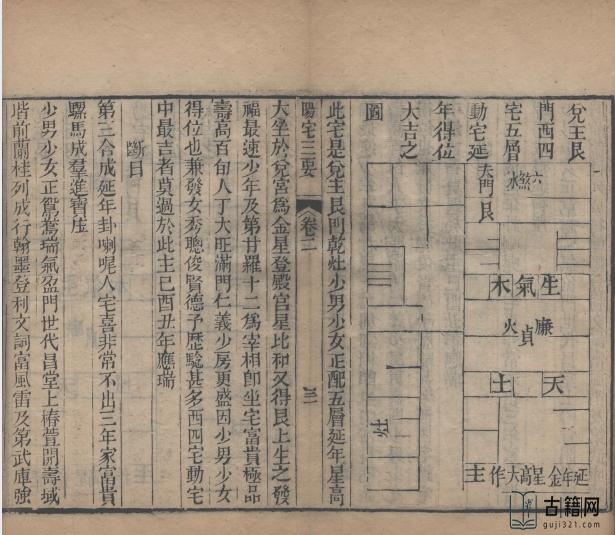 兌主艮
門西四
宅五層
動宅延
年得位
大吉之
圖
六煞水
天門艮
生氣木
廉貞火
天土
延年金星高大作主
灶
此宅是兌主艮門乾灶少男少女正配五層延年星高
陽宅三要
卷二
大坐於兌宮為金星登殿宮星比和又得艮土生之發
福最速少年及第甘羅十二為宰相即坐宅富貴極品
壽高百旬人丁大旺滿門仁義少房更盛因少男少女
得位也兼發女秀聰俊賢德予歷驗甚多西四宅動宅
中最吉者莫過於此主巳酉丑年應瑞
斷曰
第三合成延年卦喇呢人宅喜非常不出三年家富貴
騾馬成羣進寶庄
少男少女正鴛鴦瑞氣盈門世代昌堂上椿萱開壽域
堦前蘭桂列成行翰墨登利文詞富風雷及第武庫強
古籍网
guji321.com